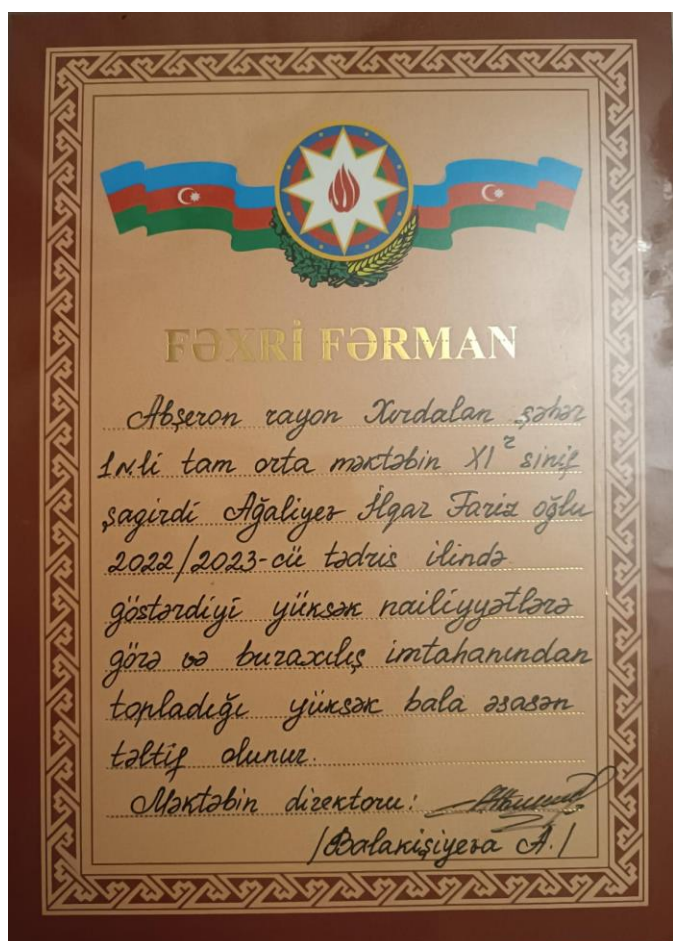 FƏXRİ FƏRMAN
Abşeron rayon Xırdalan şəhər
1 №li tam orta məktəbin XI² sinif
şagirdi Ağaliyev İlqar Fariz oğlu
2022/2023-cü tədris ilində
göstərdiyi yüksək nailiyyətlərə
görə və buraxılış imtahanından
topladığı yüksək bala əsasən
təltif olunur.
Məktəbin direktoru:
/Balakişiyeva A./